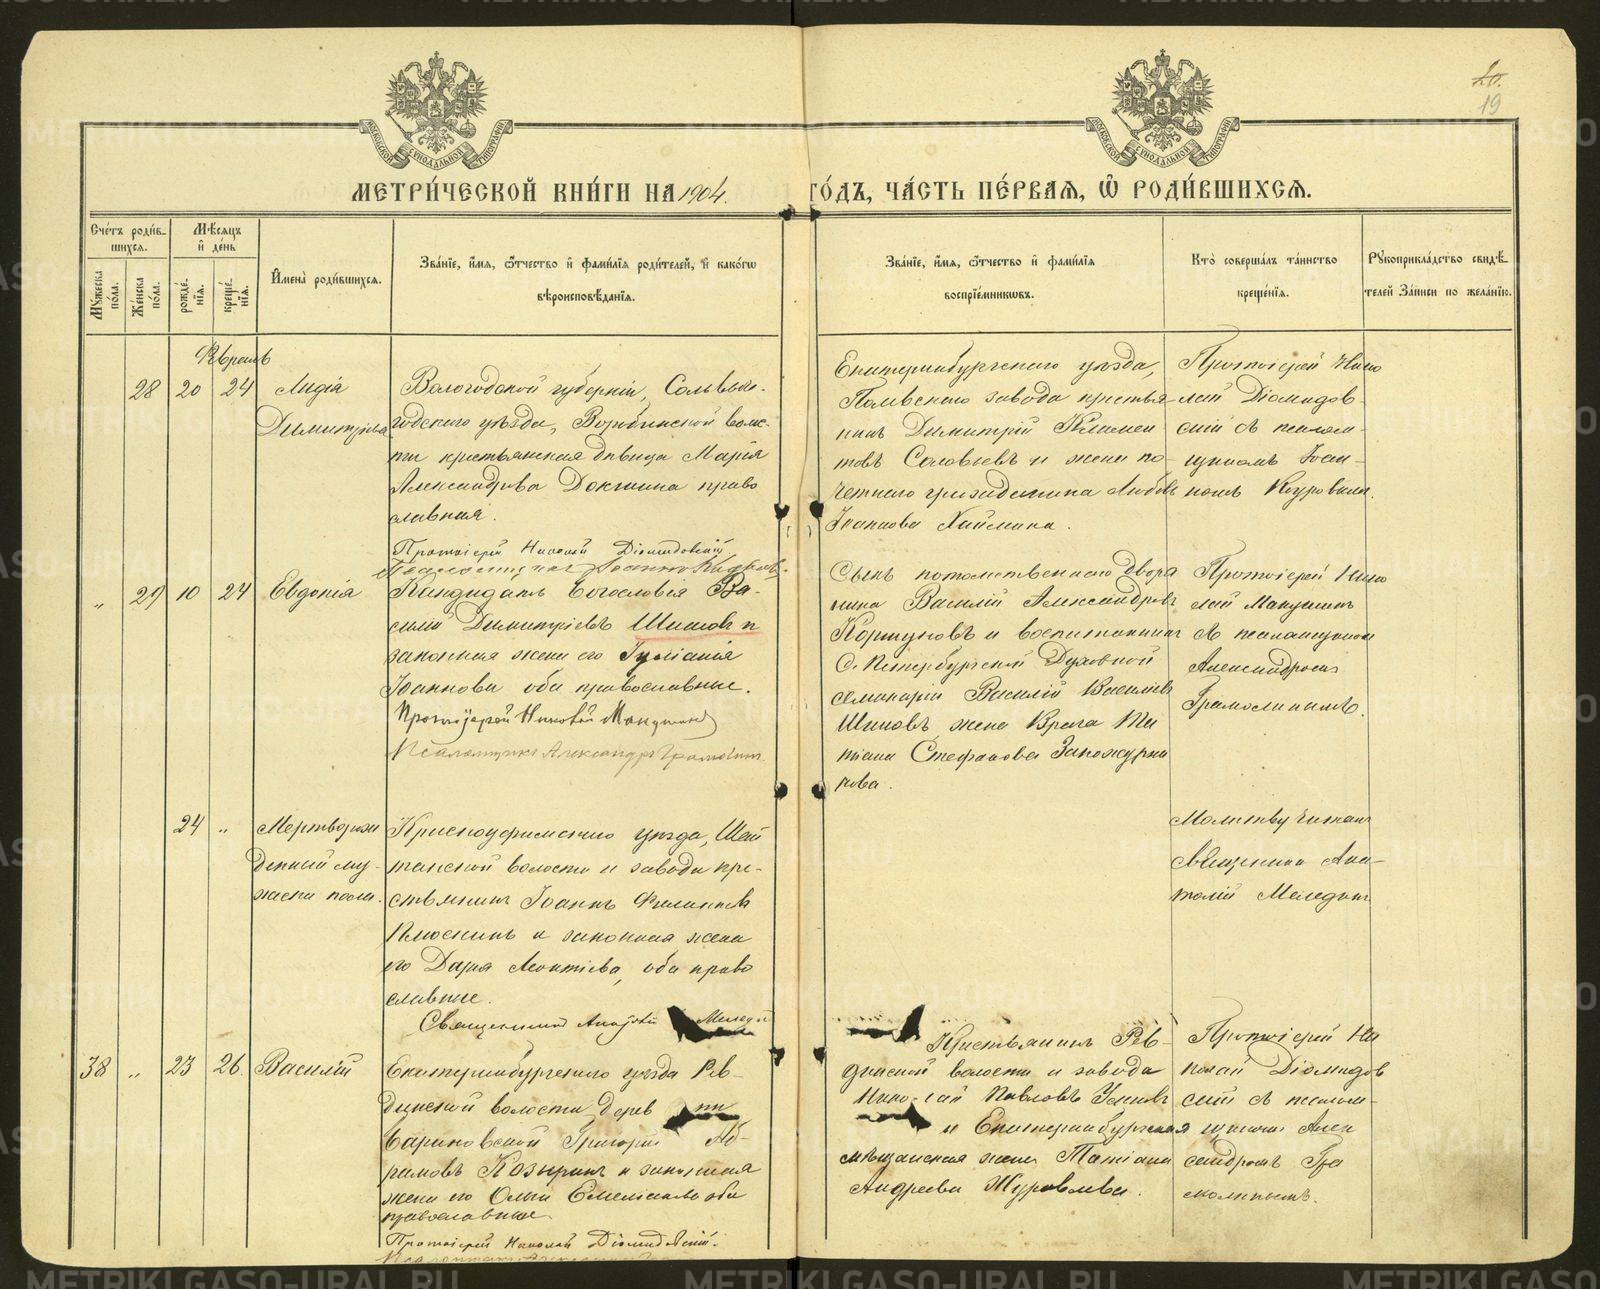 20.
19
МОСКОВСКОЙ СѴНОДАЛЬНОЙ ТИПОГРАФІИ
МОСКОВСКОЙ СѴНОДАЛЬНОЙ ТИПОГРАФІИ
МЕТРИ́ЧЕСКОЙ КНИ́ГИ НА 1904. ГО́ДЪ, ЧА́СТЬ ПЕ́РВАЯ, Ѽ РОДИ́ВШИХСЯ.
Сче́тъ роди́в-
шихся.
Мужеска по́ла.
Же́нска по́ла.
Мѣ́сяцъ
и де́нь
рожде́нія.
креще́нія.
Имена̀ роди́вшихся.
Зва́ніе, и́мя, ѻ҆́тчество и фами́лія роди́телей, и како́гѡ
вѣроисповѣ́данія.
Зва́ніе, и́мя, ѻ҆́тчество и фами́лія
воспріе́мниковъ.
Кто̀ соверша́лъ та́инство
креще́нія.
Рукоприкла́дство свидѣ́-
телей за́писи по жела́нію.
Февраль
28 20 24 Лидія
Димитріева
Вологодской губерніи, Сольвы-
годского уѣзда, Воробинской волос-
ти крестьянская дѣвица Марія
Александрова Докшина право
славная.
Протоіерей Николай Діомидовскій
Псаломщикъ Іоаннъ
Екатеринбургскаго уѣзда,
Полевского завода крестья
нинъ Димитрій Климен
товъ Соловьевъ и жена по-
четнаго гражданина Любовь
Іоаннова Хаймина.
Протоіерей Нико
лай Діомидов-
скій съ псалом-
щикомъ Іоан-
номъ
" 29 10 24 Евдокія
Кандидатъ богословія Ва-
силій Димитріевъ Шишовъ и
законная жена его Іуліанія
Іоаннова оба православные.
Протоіерей Николай Манушинъ
Псаломщикъ Александръ Грамолинъ
Сынъ потомственнаго дворя
нина Василій Александровъ
Коршуновъ и воспитанникъ
С. Петербургской Духовной
семинаріи Василій Василіевъ
Шишовъ, жена врача Та
тіана Стефанова Закожурни
кова.
Протоіерей Нико
лай Манушинъ
съ псаломщикомъ
Александромъ
Грамолинымъ.
24 " Мертворож
денный му-
жеска пола.
Красноуфимскаго уѣзда, Шай
танской волости и завода кре-
стьянинъ Іоаннъ Филиповъ
Плюснинъ и законная жена
его Дарія Леонтіева, оба право
славные.
Священникъ Анатолій Меледин
Молитву читалъ
Священникъ Ана-
толій Меледин
38 " 23 26 Василій
Екатеринбургскаго уѣзда Рев-
динской волости дерев ни
Бариновской Григорій Аб-
рамовъ Козыринъ и законная
жена его Ольга Емеліанова оба
православные.
Протоіерей Николай Діомидовскій.
Крестьянинъ Рев-
динской волости и завода
Николай Павловъ Усковъ
и Екатеринбургская
мѣщанская жена Татіана
Андреева Журавлева.
Протоіерей Ни
колай Діомидов
скій съ псалом-
щикомъ Алек
сандромъ Гра
молинымъ.
METRIKI.GASO-URAL.RU